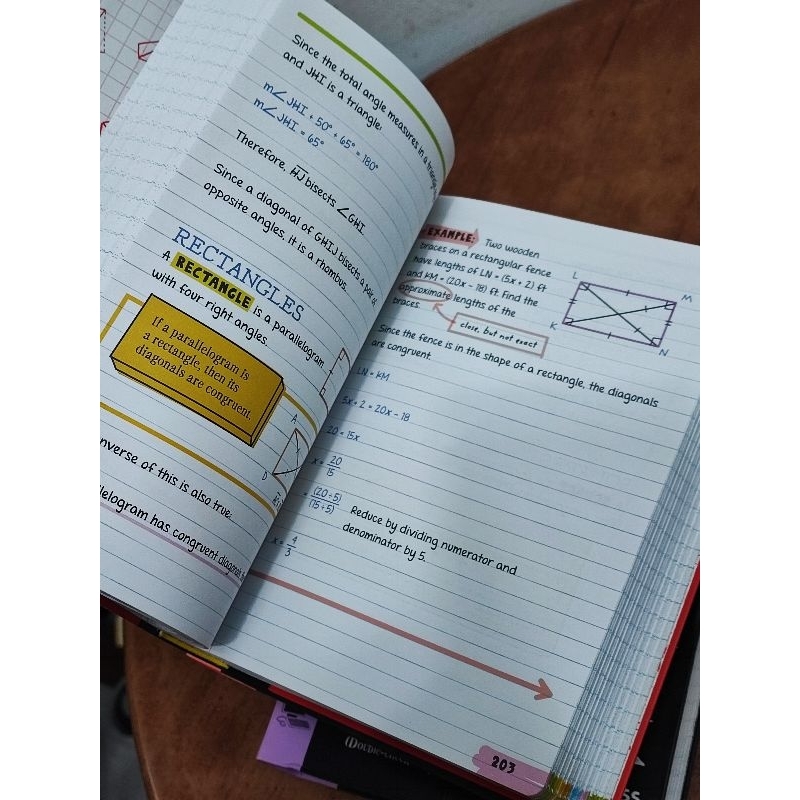 Since the total angle measures in a
and JHI is a triangle:
m∠JHI + 50° + 65° = 180°
m∠JHI = 65°
Therefore, HJ bisects ∠GHI.
Since a diagonal of GHIJ bisects a pair of
opposite angles, it is a rhombus.
RECTANGLES
A RECTANGLE is a parallelogram
with four right angles.
If a parallelogram is
a rectangle, then its
diagonals are congruent.
A
D
nverse of this is also true:
llelogram has congruent diagonals
EXAMPLE: Two wooden
braces on a rectangular fence
have lengths of LN = (5x + 2) ft
and KM = (20x - 18) ft. Find the
approximate lengths of the
braces.
close, but not exact
L
M
K
N
Since the fence is in the shape of a rectangle, the diagonals
are congruent.
LN = KM
5x + 2 = 20x - 18
20 = 15x
x = 20/15
= (20÷5)/(15÷5)
Reduce by dividing numerator and
denominator by 5.
x = 4/3
203